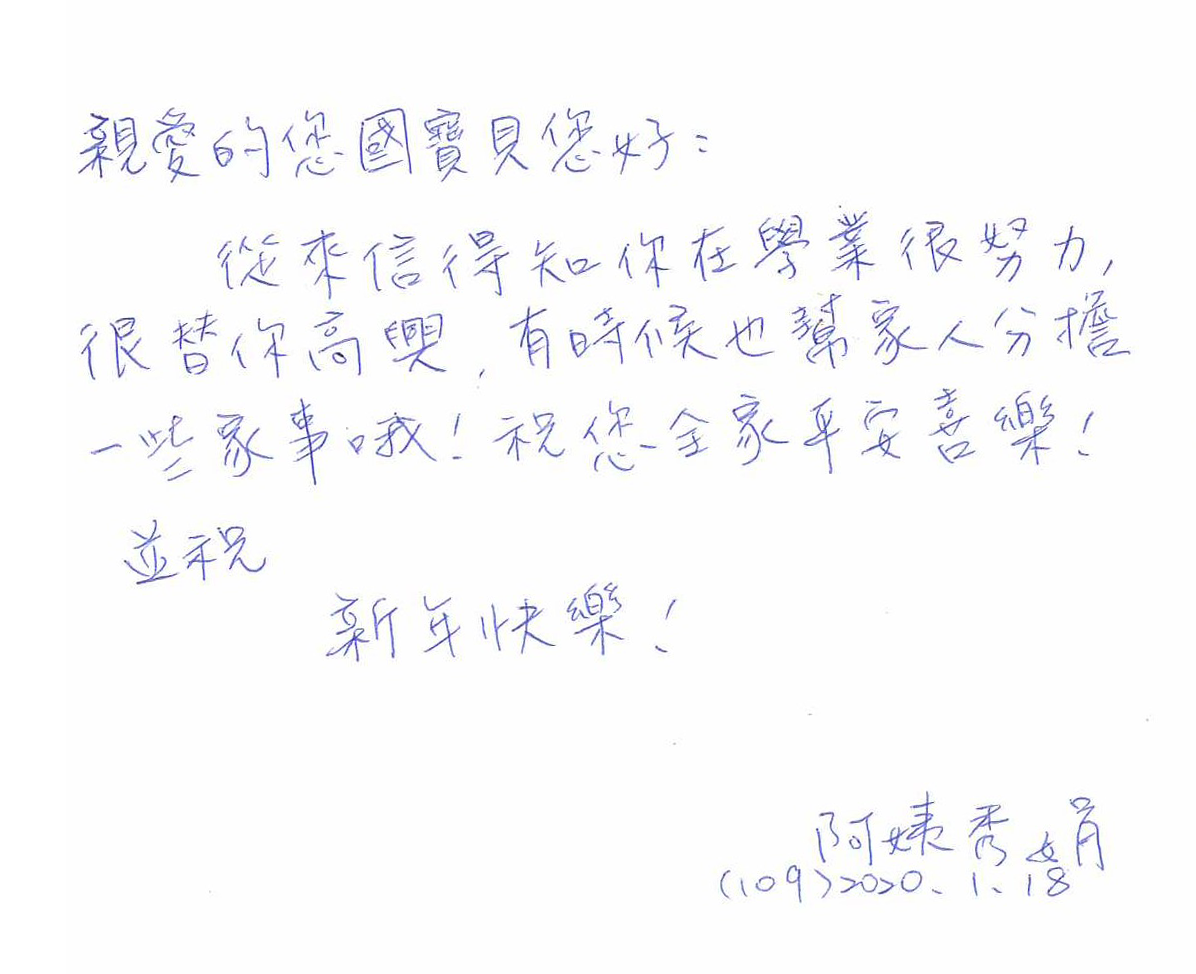 親愛的您國寶貝您好：
從來信得知你在學業很努力,
很替你高興, 有時候也幫家人分擔
一些家事哦! 祝您全家平安喜樂!
並祝
新年快樂!
阿姨秀娟
(109)2020、1、18